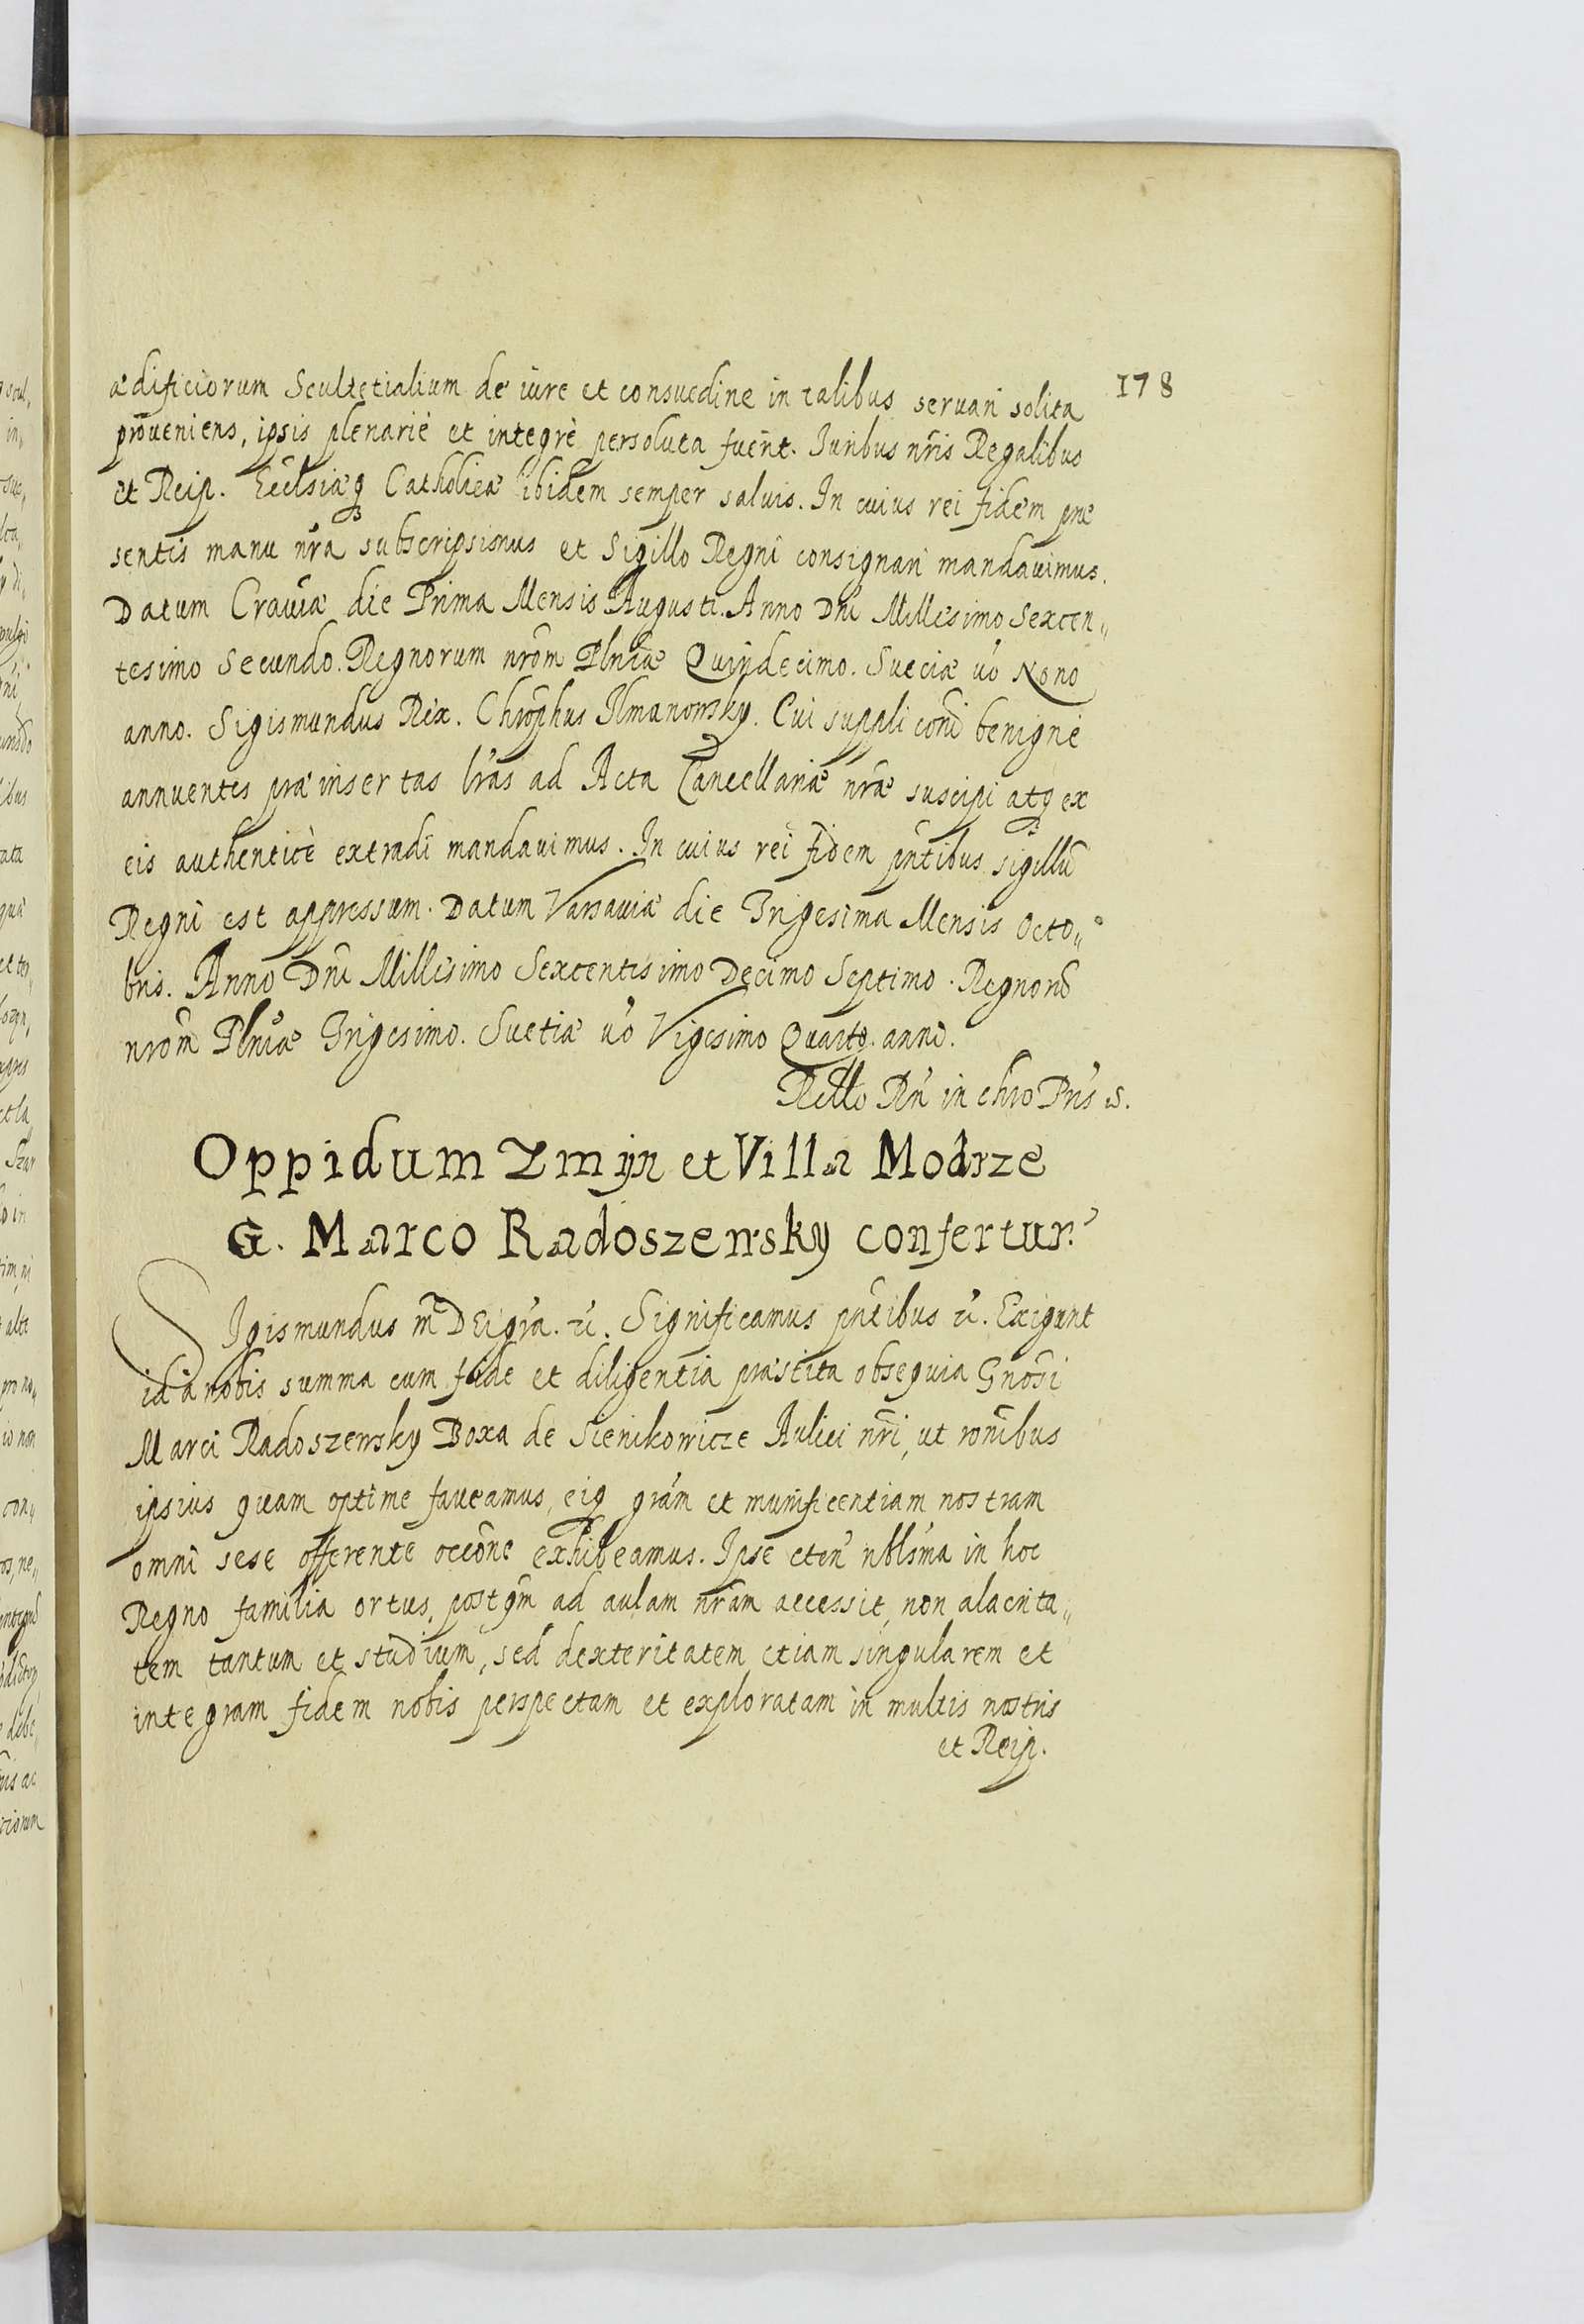 178
ædificiorum Scultetialium de iure et consuedine in talibus servari solita
proveniens, ipsis plenariè et integrè persoluta fuerĩt. Juribus nr̃is Regalibus
et Reip. Eccłsiæq Catholicæ ibidem semper salvis. In cuius rei fidem præ
sentis manu nr̃a subscripsimus et Sigillo Regni consignari mandavimus.
Datum Cra͠viæ die Prima Mensis Augusti. Anno Dni͠ Millesimo Sexcen„
tesimo Secundo. Regnorum nr̃om Pl͠niæ Quindecimo. Sueciæ vo͠ Nono
anno. Sigismundus Rex. Chro͠phus Ilmanowsky. Cui supplicõni benignè
annuentes præinsertas lr̃as ad Acta Cancellariæ nr̃æ suscipi atq ex
eis authenticè extradi mandavimus. In cuius rei fidem pn͠tibus sigillũ
Regni est appressum. Datum Varsaviæ die Trigesima Mensis Octo„
bris. Anno Dni͠ Millesimo Sexcentesimo Decimo Septimo. Regnorũ
nr̃om Pl͠niæ Trigesimo. Suetiæ vo͠ Vigesimo Quarto. anno.
Rello Rñ in chro Pr̃is S.
Oppidum Zmijn et Villa Modrze
G. Marco Radoszewsky confertur.
SIgismundus IIIˢ DEi gr̃a. &. Significamus pn͠tibus &. Exigunt
id à nobis summa cum fide et diligentia præstita obsequia Gnõsi
Marci Radoszewsky Boxa de Sienikowicze Aulici nr̃i, ut ronĩbus
ipsius quam optime faveamus, eiq gr̃am et munificentiam nostram
omni sese offerente occõne exhibeamus. Ipse eten͠ nbl͠sma in hoc
Regno familia ortus, postqm͠ ad aulam nr̃am accessit, non alacrita„
tem tantum et studium, sed dexteritatem etiam singularem et
integram fidem nobis perspectam et exploratam in multis nostris
et Reip.